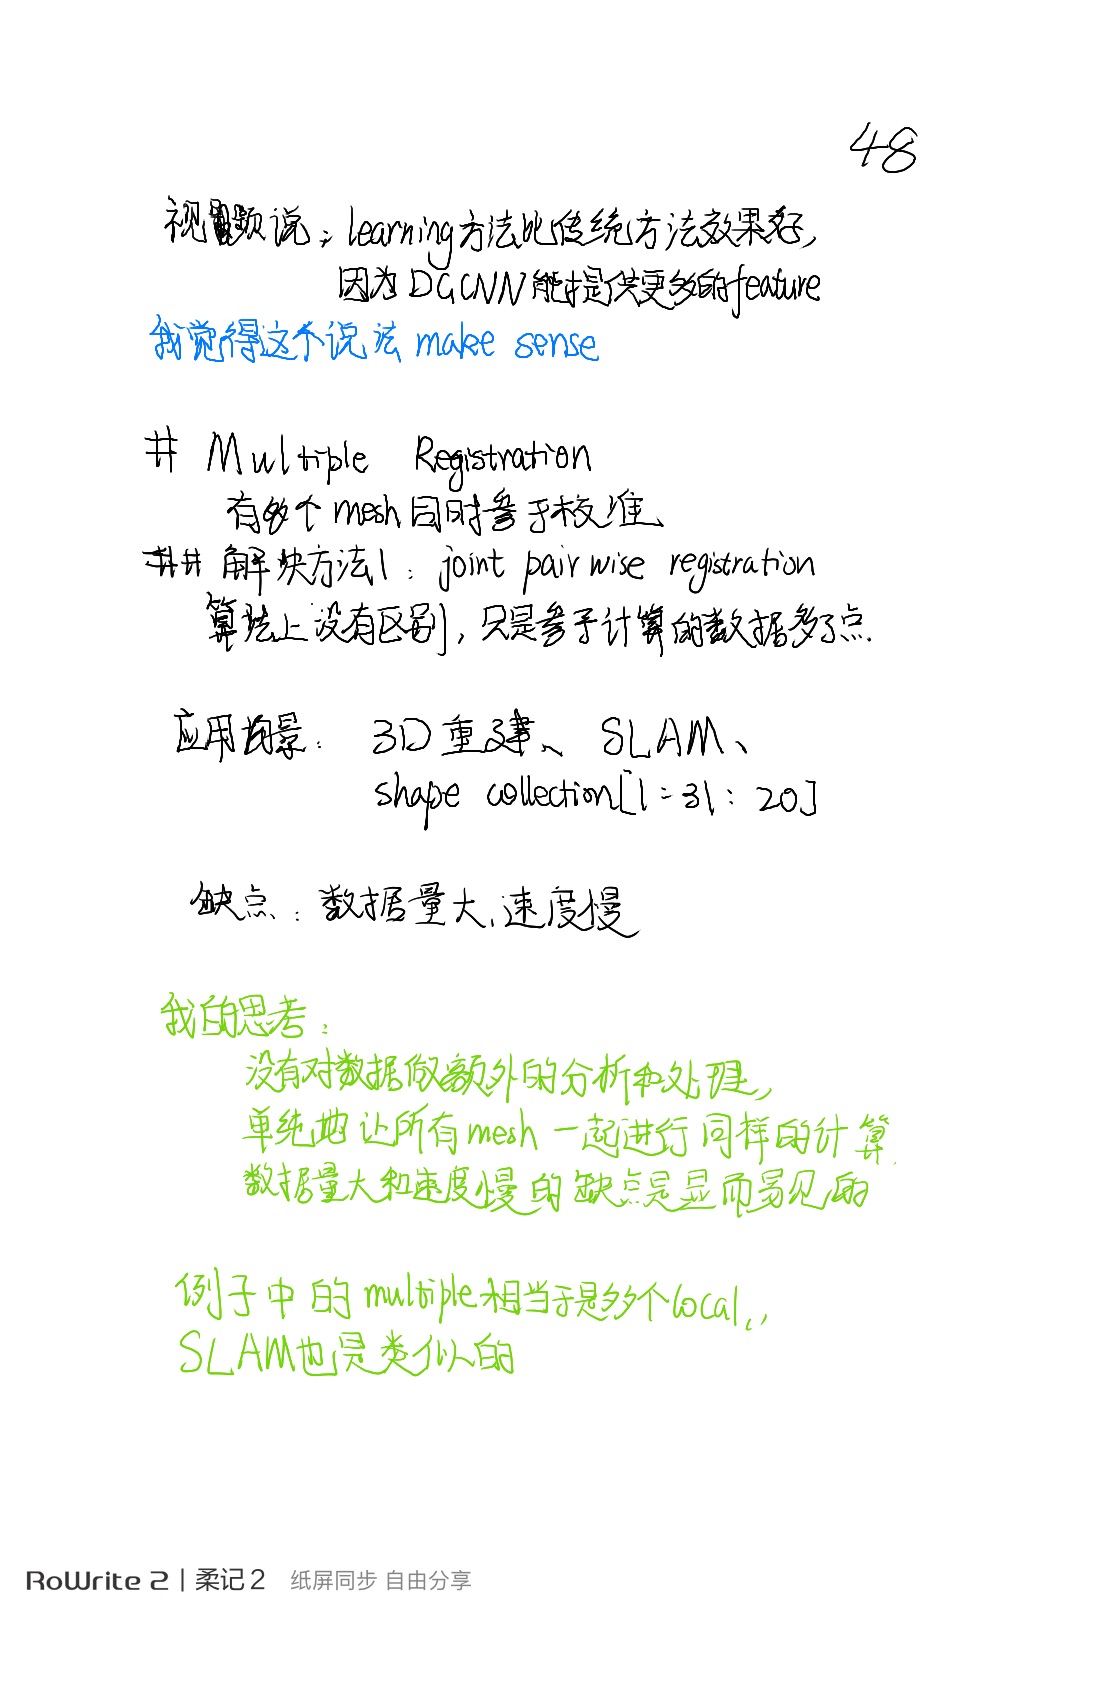 48
视频说：learning方法比传统方法效果好，
因为DGCNN能提供更多的feature
我觉得这个说法 make sense
# Multiple Registration
有多个mesh同时参于校准、
## 解决方法1：joint pairwise registration
算法上没有区别，只是参于计算的数据多了点.
应用场景： 3D重建、SLAM、
shape collection[1:31:20]
缺点：数据量大、速度慢
我的思考：
没有对数据做额外的分析和处理，
单纯地让所有mesh一起进行同样的计算.
数据量大和速度慢的缺点是显而易见的
例子中的multiple相当于是多个local,
SLAM也是类似的
RoWrite 2 | 柔记2 纸屏同步 自由分享